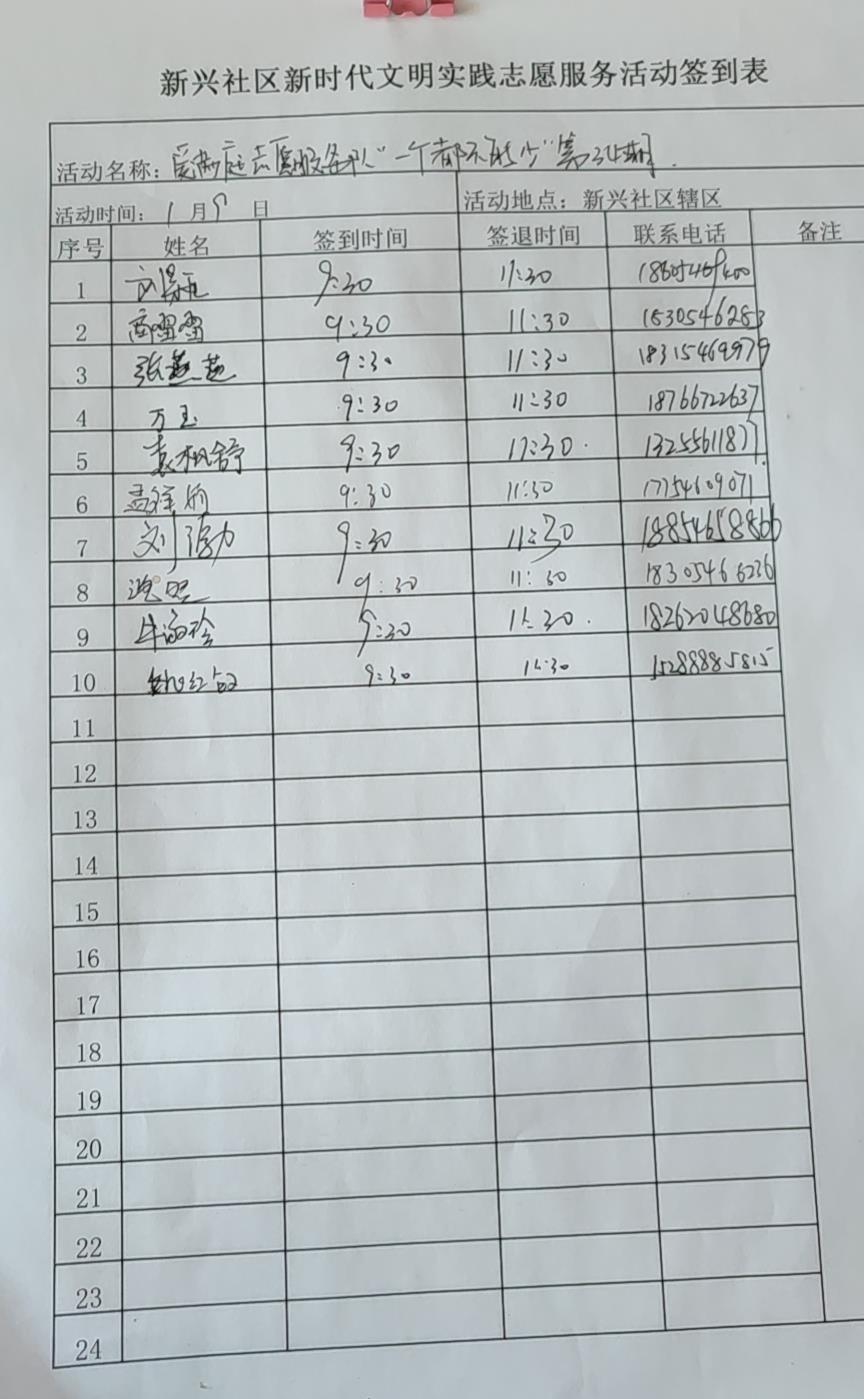 新兴社区新时代文明实践志愿服务活动签到表
活动名称：志愿服务队“一个都不能少”第34期
活动时间：1月9日 活动地点：新兴社区辖区
序号 姓名 签到时间 签退时间 联系电话 备注
1 9:30 11:30
2 高雪雪 9:30 11:30
3 张燕燕 9:30 11:30 18315469979
4 万玉 9:30 11:30 18766722637
5 袁枫舒 9:30 11:30 13255611877
6 9:30 11:30 17754609071
7 9:30 11:30 18854658866
8 9:30 11:30 18305466236
9 9:30 11:30 18262048680
10 9:30 11:30 15288885815
11
12
13
14
15
16
17
18
19
20
21
22
23
24